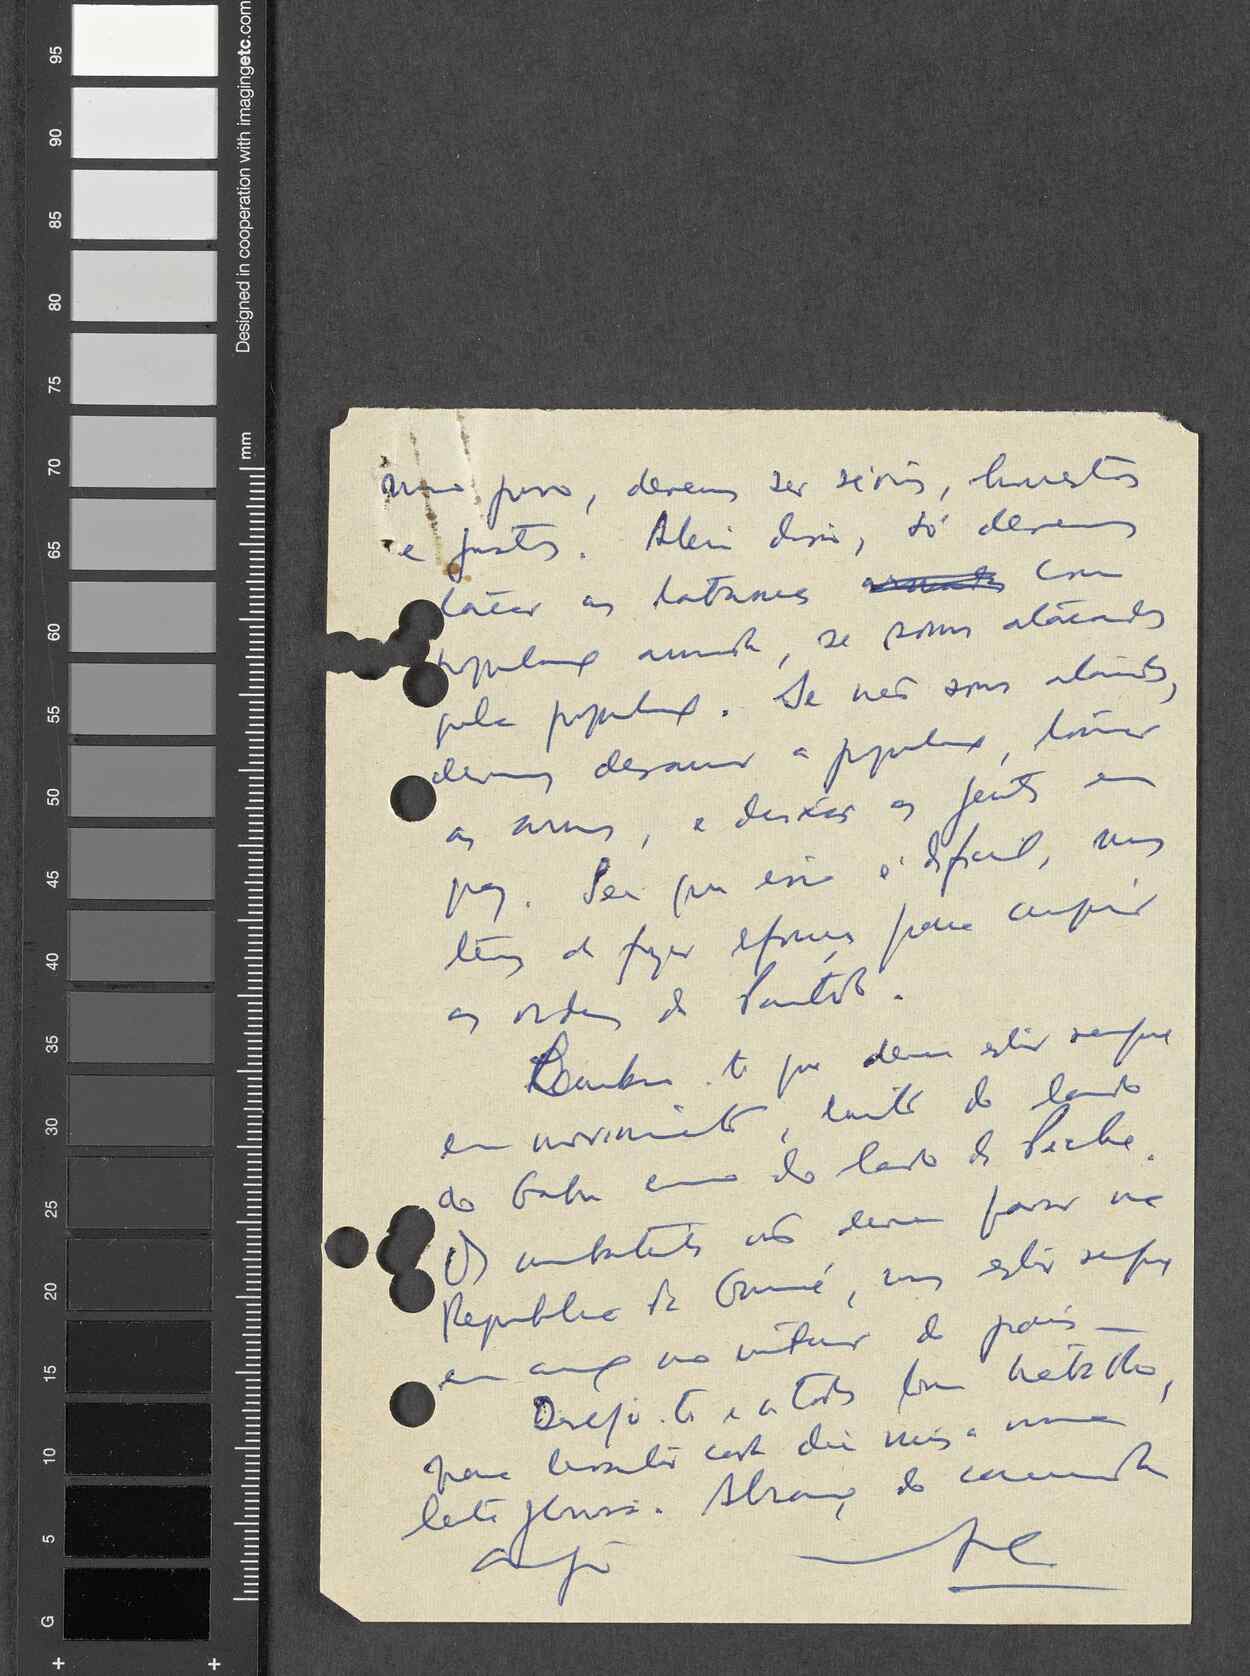 95
90
85
80
75
70
65
60
55
50
45
40
35
30
25
20
15
10
5
G
Designed in cooperation with imagingetc.com
mm
povo, devemos ser sérios, honestos
e justos. Além disso, só devemos
as tabancas com
população armada, se somos atacados
pela população. Se não somos atacados,
devemos desarmar a população, tomar
as armas, e deixar as gentes em
paz. Sei que isso é difícil, mas
temos de fazer esforços para cumprir
as ordens do Partido.
Lembro-te que devem estar sempre
em movimento, tanto do lado
do Gabu como do lado do
Os combatentes não devem parar na
República da Guiné, mas estar sempre
em acção no interior do país —
Desejo-te e a todos bom trabalho,
para consolidar cada dia mais a nossa
luta gloriosa. Abraços do camarada
amigo